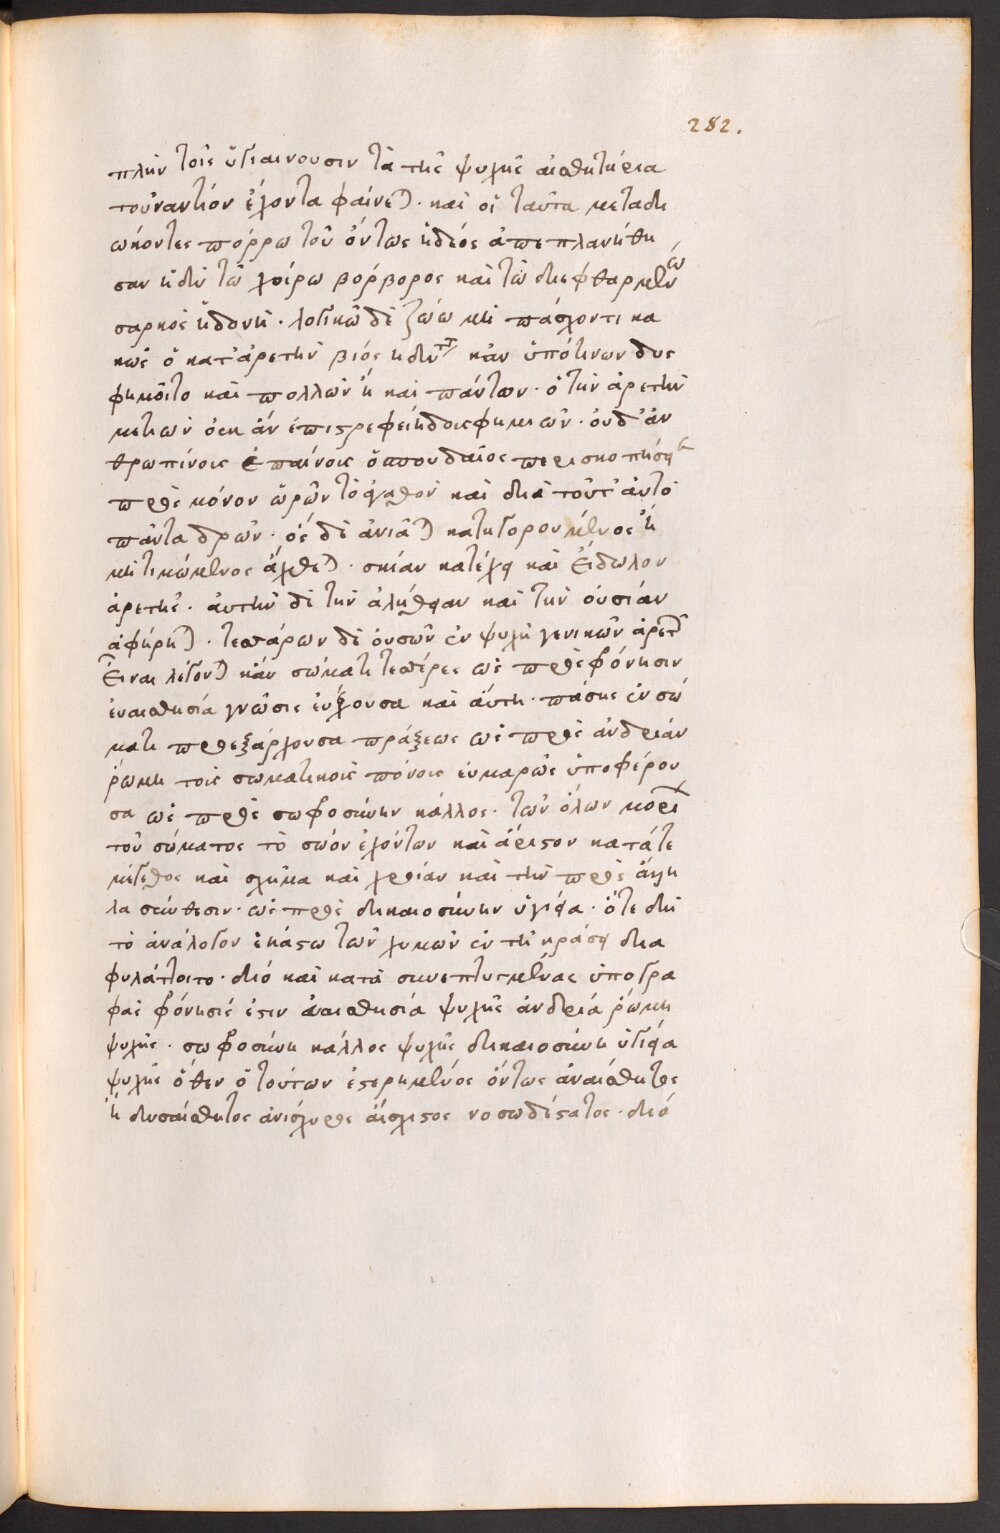 282.
πλὴν τοῖς ὑγιαίνουσιν τὰ τῆς ψυχῆς αἰσθητήρια
τοὐναντίον ἔχοντα φαίνε). καὶ οἱ ταῦτα μεταδι
ώκοντες πόρρω τοῦ ὄντως ἡδέος ἀπεπλανήθη
σαν ἡδὺ τῶ χοίρω βόρβορος καὶ τῶ διεφθαρμένω
σαρκὸς ἡδονή. λογικῶ δὲ ζώω μὴ πάσχοντι κα
κῶς ὁ κατ' ἀρετὴν βίος ἡδὺς κἂν ὑπό τινων δυσ
φημοῖτο καὶ πολλῶν ἢ καὶ πάντων. ὁ τὴν ἀρετὴν
μετιὼν ἂν ἐπιστρεφείη δυσφημιῶν. οὐδ' ἀν
θρωπίνοις ἐπαίνοις ὁ σπουδαῖος περισκοπήσει
πρὸς μόνον ὁρῶν τὸ ἀγαθὸν καὶ διὰ τοῦτ' αὐτὸ
πάντα δρῶν. ὃς δὲ ἀνιᾶ) κατηγορούμενος ἢ
μὴ τιμώμενος ἄχθε). σκίαν κατέχει καὶ εἴδωλον
ἀρετῆς. αὐτὴν δὲ τὴν ἀλήθειαν καὶ τὴν οὐσίαν
ἀφήρη). τεσσάρων δὲ οὐσῶν ἐν ψυχῆ γενικῶν ἀρετ
εἶναι λέγον) κἂν σώματι τεσσάρες ὡς πρὸς φρόνησιν
ἐυαισθησία γνῶσις ἐνέχουσα καὶ αὕτη. πάσης ἐν σώ
ματι προεξάρχουσα πράξεως ὡς πρὸς ἀνδρείαν
ῥώμη τοῖς σωματικοῖς πόνοις εὐμαρῶς ὑποφέρου
σα ὡς πρὸς σωφροσύνην κάλλος. τῶν ὅλων μορί
τοῦ σώματος τὸ σῶον ἐχόντων καὶ ἄριστον κατά τε
μέγεθος καὶ σχῆμα καὶ χροιὰν καὶ τὴν πρὸς ἄλλη
λα σύνθεσιν. ὡς πρὸς δικαιοσύνην ὑγίεια. ὅτε δὴ
τὸ ἀνάλογον ἑκάστω τῶν χυμῶν ἐν τῆ κράσει δια
φυλάττοιτο. διὸ καὶ κατὰ συνεπτυγμένας ὑπογρα
φὰς φρόνησίς ἐστιν ἐυαισθησία ψυχῆς ἀνδρεία ῥώμη
ψυχῆς. σωφροσύνη κάλλος ψυχῆς δικαιοσύνη ὑγίεια
ψυχῆς ὅθεν ὁ τούτων ἐστερημένος ὄντως ἀναίσθητος
ἢ δυσαίσθητος ἀνίσχυρος αἴσχιστος νοσωδέστατος. διὸ